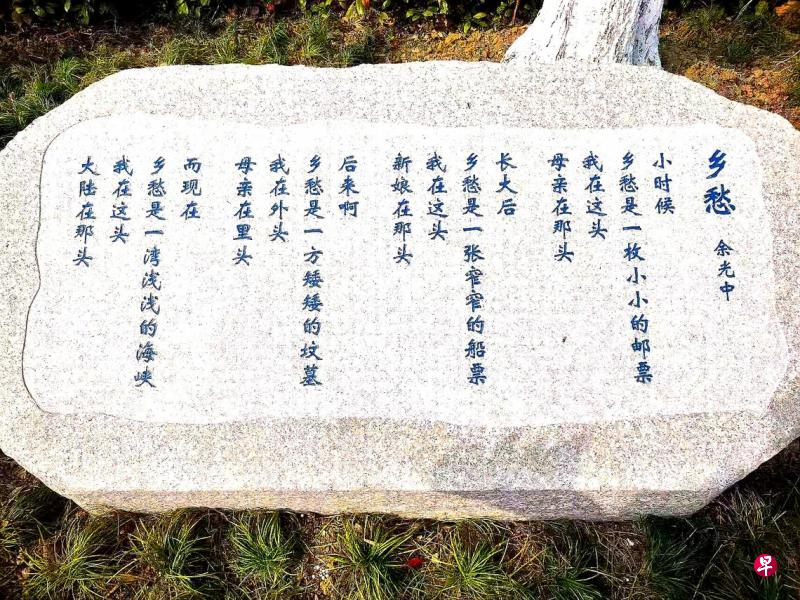 乡愁
余光中
小时候
乡愁是一枚小小的邮票
我在这头
母亲在那头
长大后
乡愁是一张窄窄的船票
我在这头
新娘在那头
后来啊
乡愁是一方矮矮的坟墓
我在外头
母亲在里头
而现在
乡愁是一湾浅浅的海峡
我在这头
大陆在那头
早